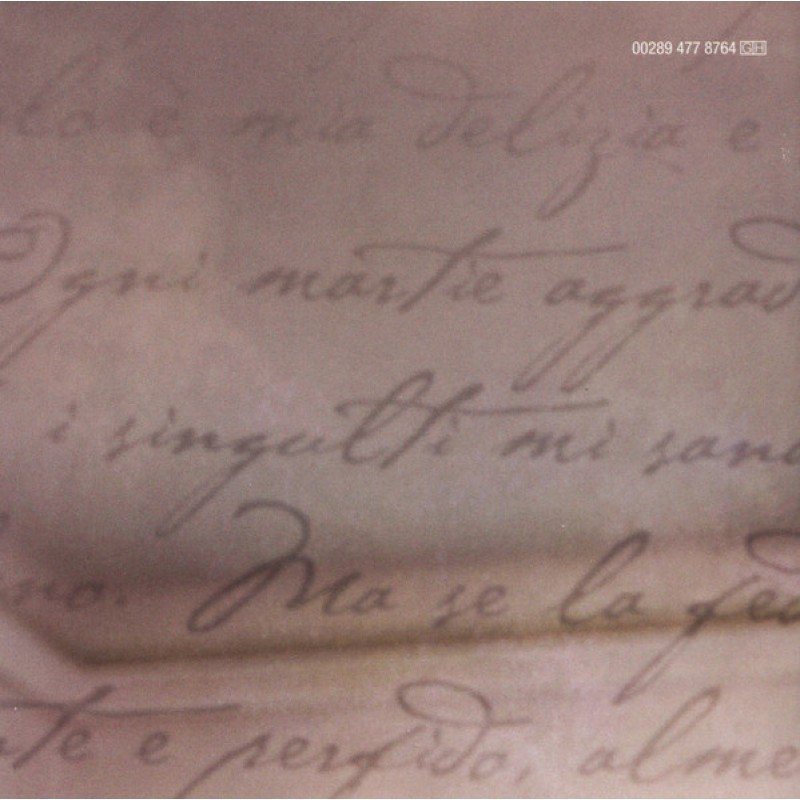 00289 477 8764 GH
lo è mia delizia e
Ogni martie aggrad
i singulti mi
no. Ma se la fed
te e perfido, alme